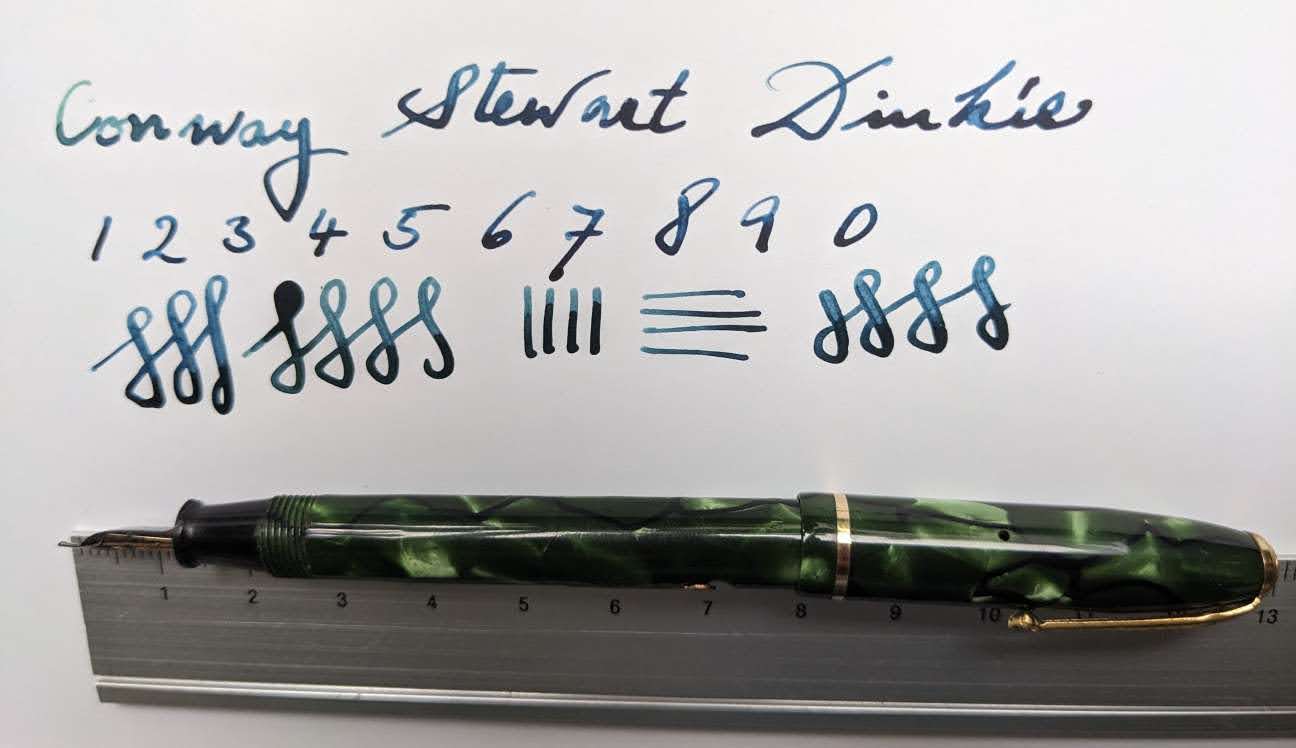 Conway Stewart Dinkie
1 2 3 4 5 6 7 8 9 0
1 2 3 4 5 6 7 8 9 10 11 12 13